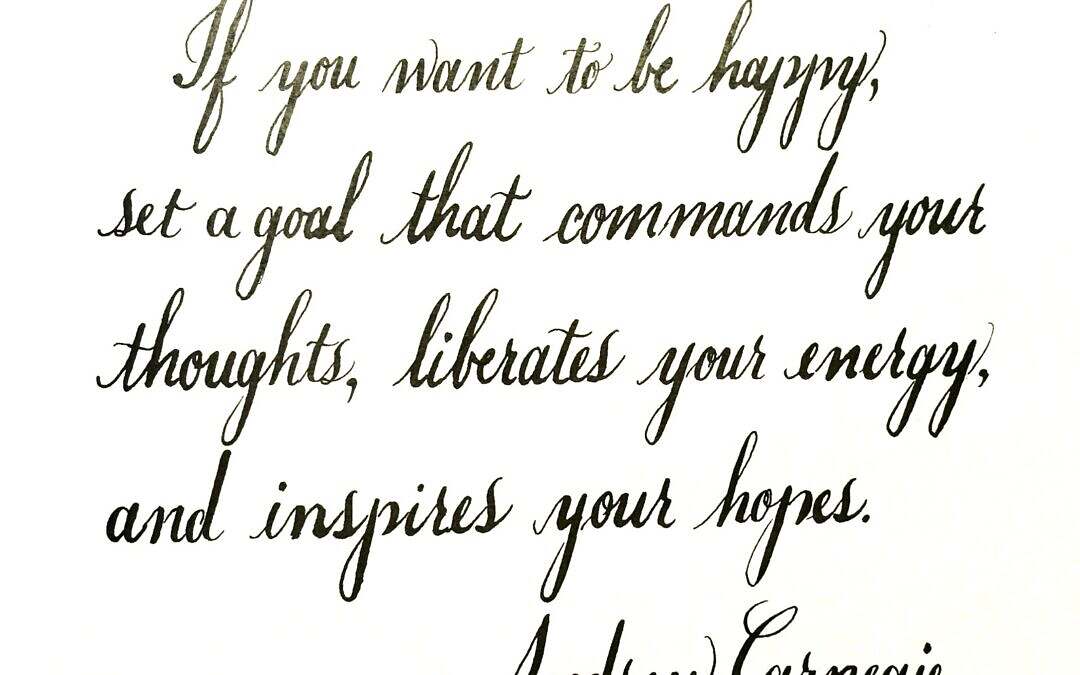 If you want to be happy,
set a goal that commands your
thoughts, liberates your energy,
and inspires your hopes.
Andrew Carnegie